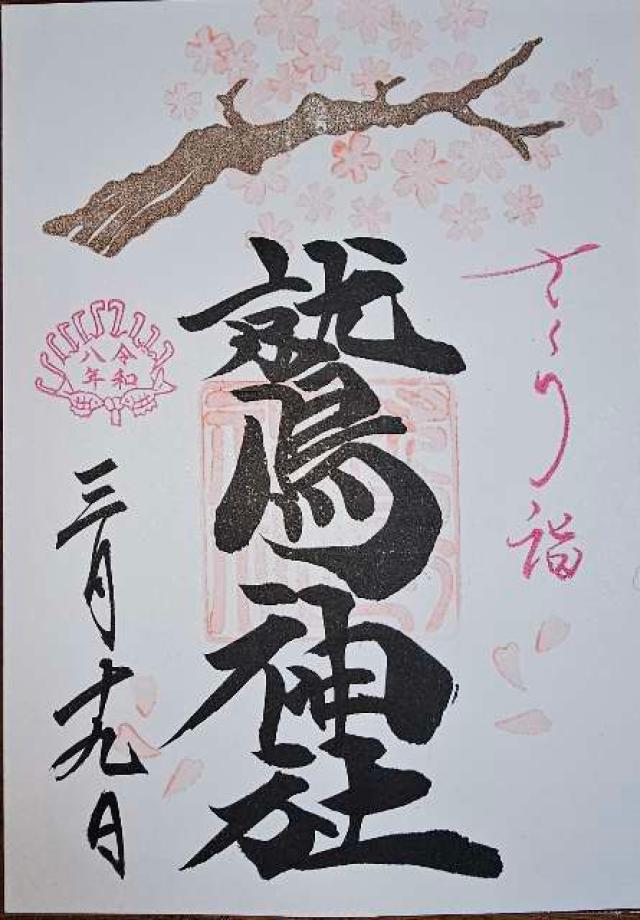 さくら詣
鷲神社
令和
八年
三月十九日